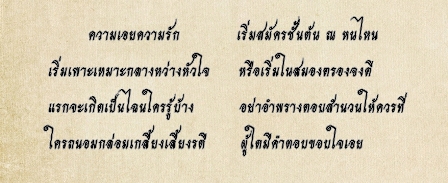 ความเอยความรัก เริ่มสมัครชั้นต้น ณ หนไหน
เริ่มเพาะเหมาะกลางหว่างหัวใจ หรือเริ่มในสมองตรองจงดี
แรกจะเกิดเป็นไฉนใครรู้บ้าง อย่าอำพรางตอบสำนวนให้ควรที่
ใครถนอมกล่อมเกลี้ยงเลี้ยงรตี ผู้ใดมีคำตอบขอบใจเอย